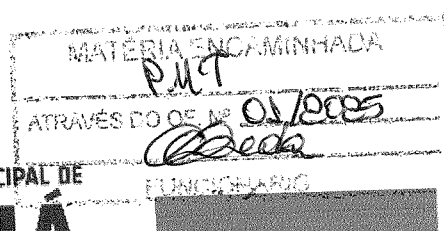 MATÉRIA ENCAMINHADA
PMT
ATRAVÉS DO OF. Nº 01/2025
FUNCIONÁRIO
CIPAL DE
LÁ